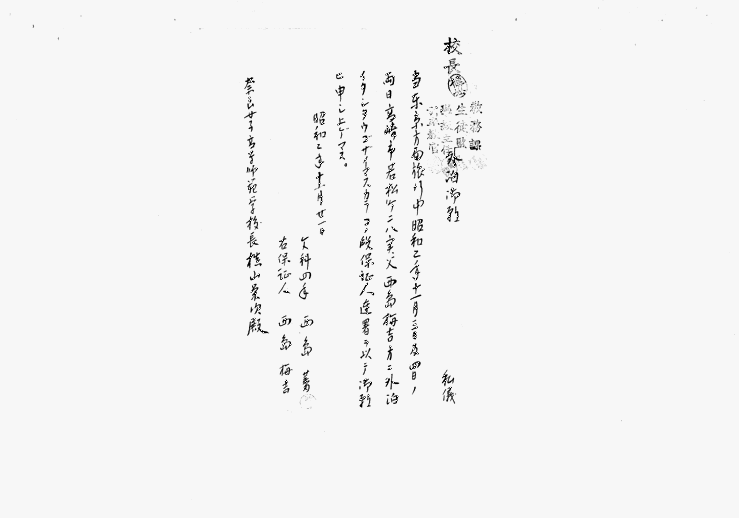 校長
教務課
生徒監
外泊御願
私儀
当東京方面旅行中昭和乙年十一月三日及四日ノ
両日高崎市若松町二八実父西島梅吉方ニ外泊
イタシタウゴザイマスカラコノ段保証人連署ヲ以テ御願
ヒ申シ上ゲマス。
昭和乙年十月廿一日
文科四年 西島
右保証人 西島梅吉
奈良女子高等師範学校長槙山栄次殿